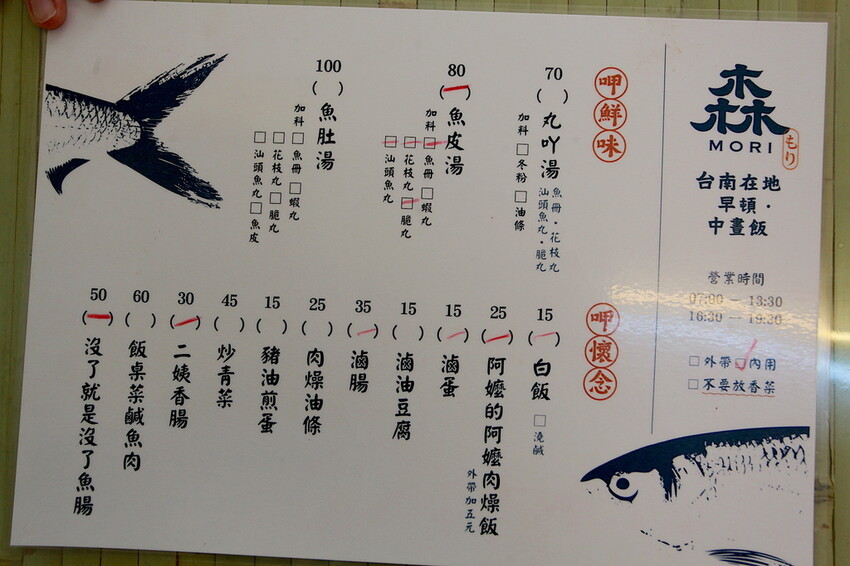 森
MORI
もり
台南在地
早頓·
中晝飯
營業時間
07:00 — 13:30
16:30 — 19:30
□外帶□內用
□不要放香菜
呷鮮味
70
( )
丸吖湯
魚冊·花枝丸
汕頭魚丸·脆丸
加料 □冬粉 □油條
80
( )
魚皮湯
加料 □魚冊 □蝦丸
□花枝丸 □脆丸
□汕頭魚丸
100
( )
魚肚湯
加料 □魚冊 □蝦丸
□花枝丸 □脆丸
□汕頭魚丸 □魚皮
呷懷念
15
( )
白飯 □澆鹹
25
( )
阿嬤的阿嬤肉燥飯
外帶加五元
15
( )
滷蛋
15
( )
滷油豆腐
35
( )
滷腸
25
( )
肉燥油條
15
( )
豬油煎蛋
45
( )
炒青菜
30
( )
二姨香腸
60
( )
飯桌菜鹹魚肉
50
( )
沒了就是沒了魚腸